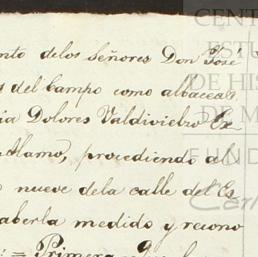 nto delos Señores Don José
s del Campo como albaceas
ia Dolores Valdivielso Ex
Alamo, procediendo al
nueve dela calle del Es
aberla medido y recono
:= Primera
CENT
STU
DE HIS
DE M
FUND